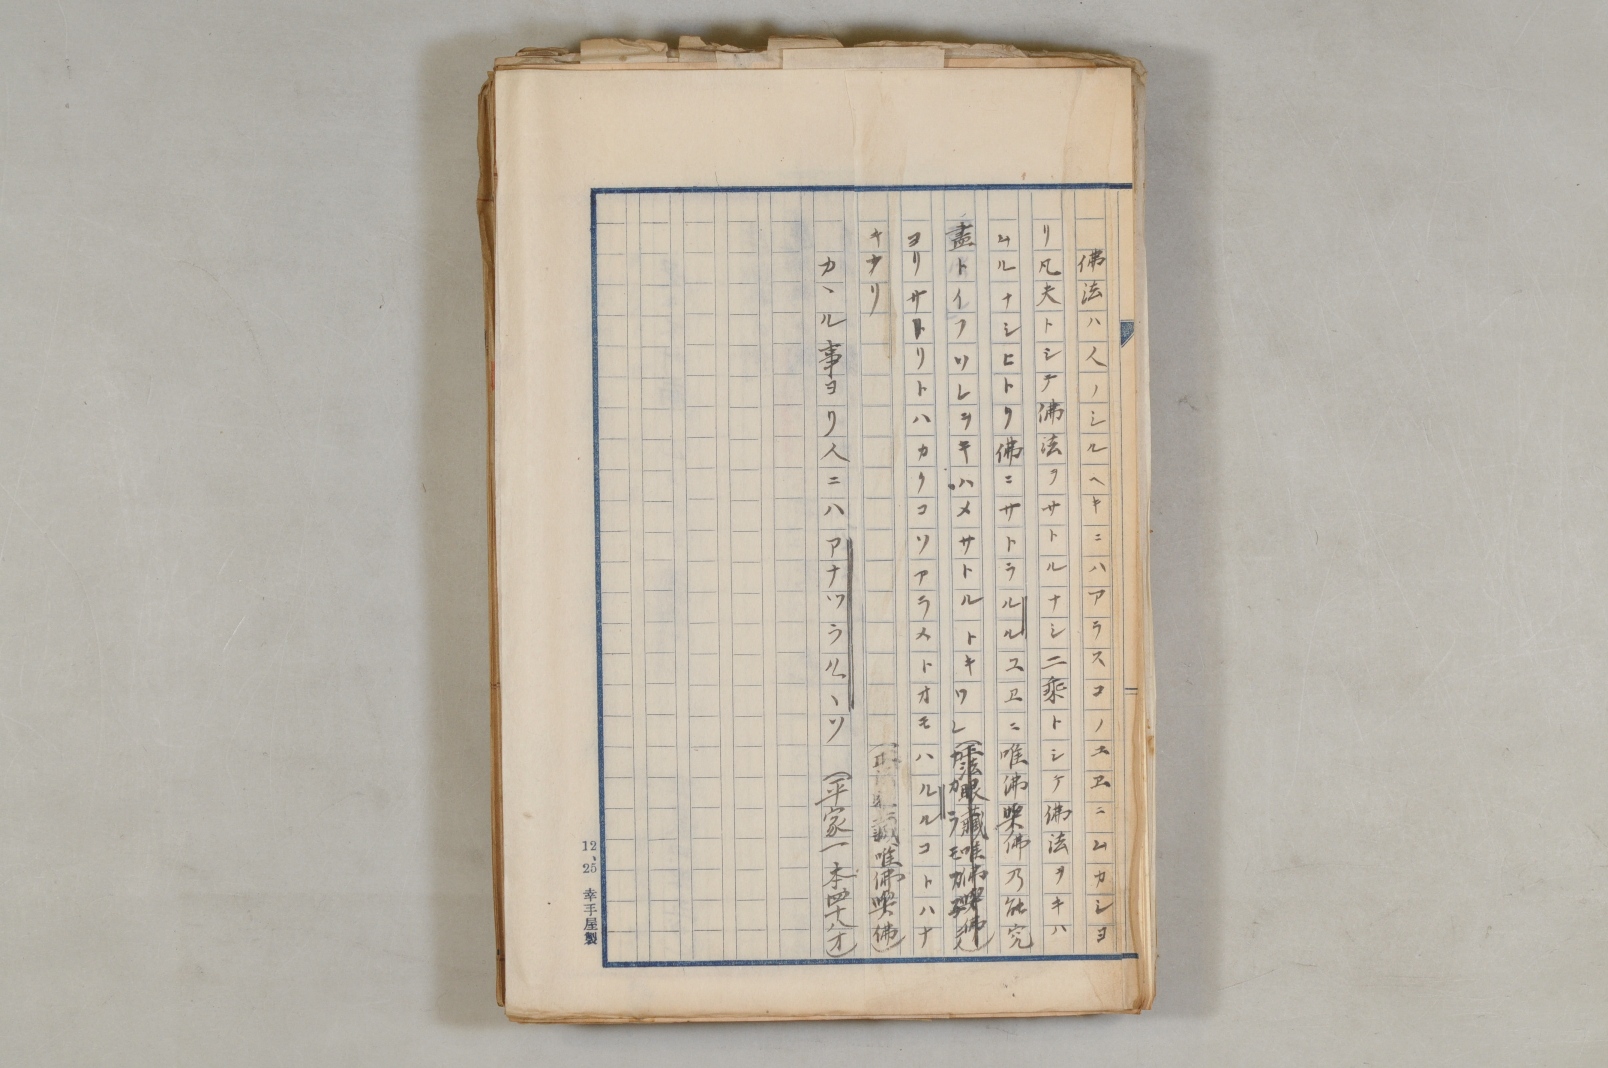 佛法ハ人ノシルヘキニハアラスコノユヱニムカシヨ
リ凡夫トシテ佛法ヲサトルナシ二乘トシケ佛法ヲキハ
ムルナシヒトリ佛ニサトラルルユヱニ唯佛與佛乃能究
盡トイフソレヲキハメサトルトキワレ
ヨリサトリトハカクコソアラメトオモハルルコトハナ
キナリ
唯佛與佛)
カヽル事ヨリ人ニハアナツラルヽソ (平家一本四十八オ)
12、25 幸手屋製